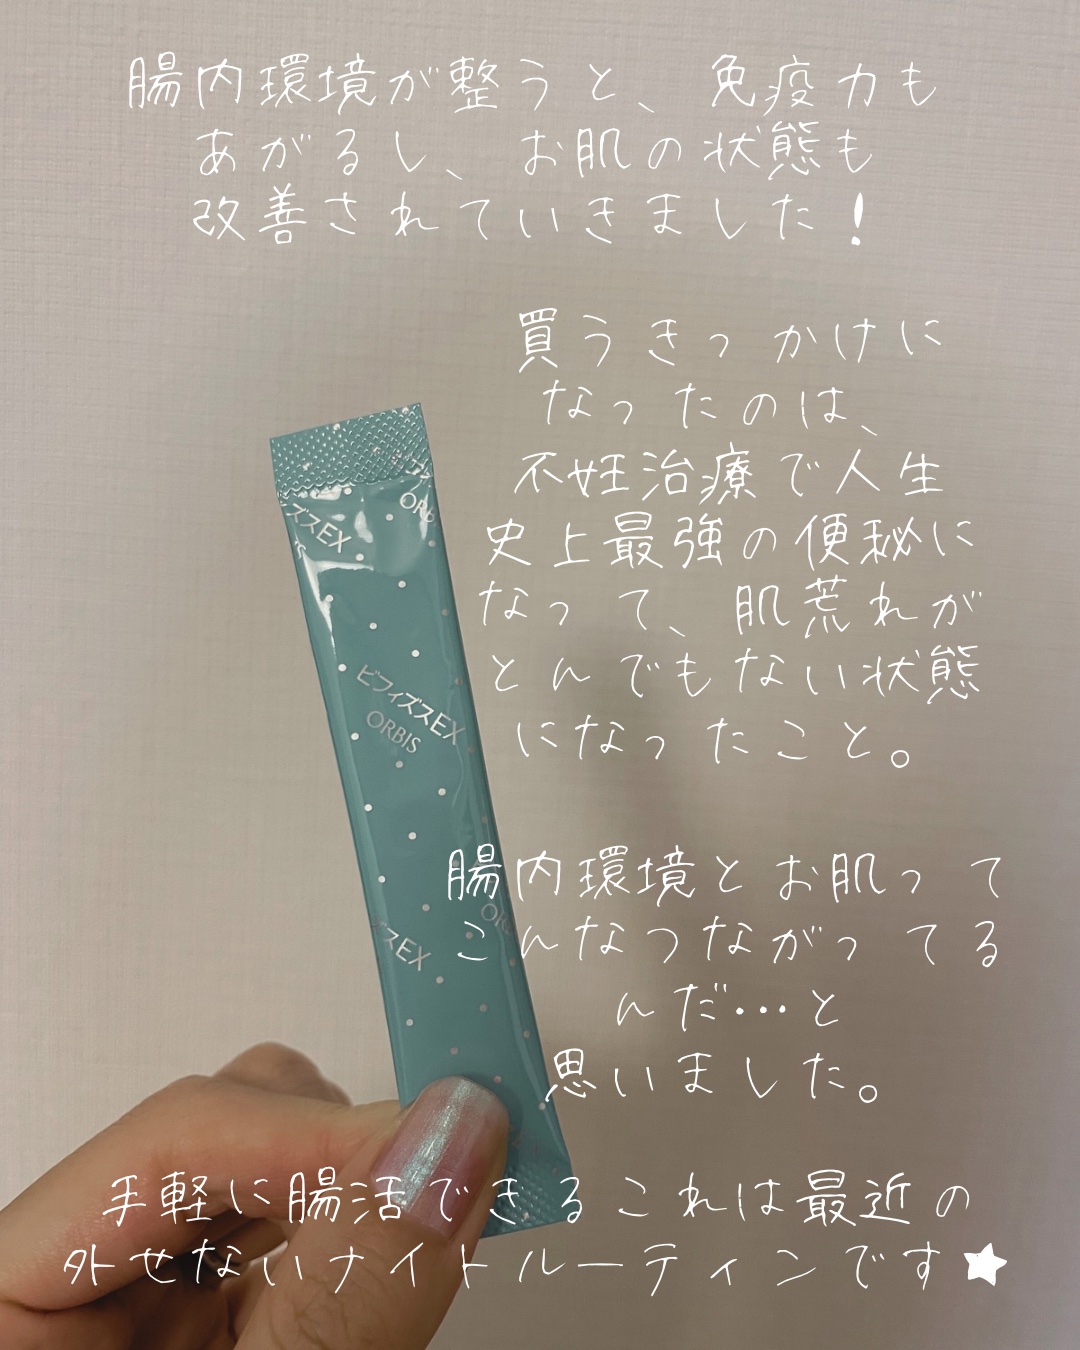 腸内環境が整うと、免疫力も
あがるし、お肌の状態も
改善されていきました！
買うきっかけに
なったのは、
不妊治療で人生
史上最強の便秘に
なって、肌荒れが
とんでもない状態
になったこと。
ORB
ィズスEX
ビフィズスEX
ORBIS
腸内環境とお肌って
こんなつながってる
んだ…と
思いました。
ズスEX
手軽に腸活できるこれは最近の
外せないナイトルーティンです★